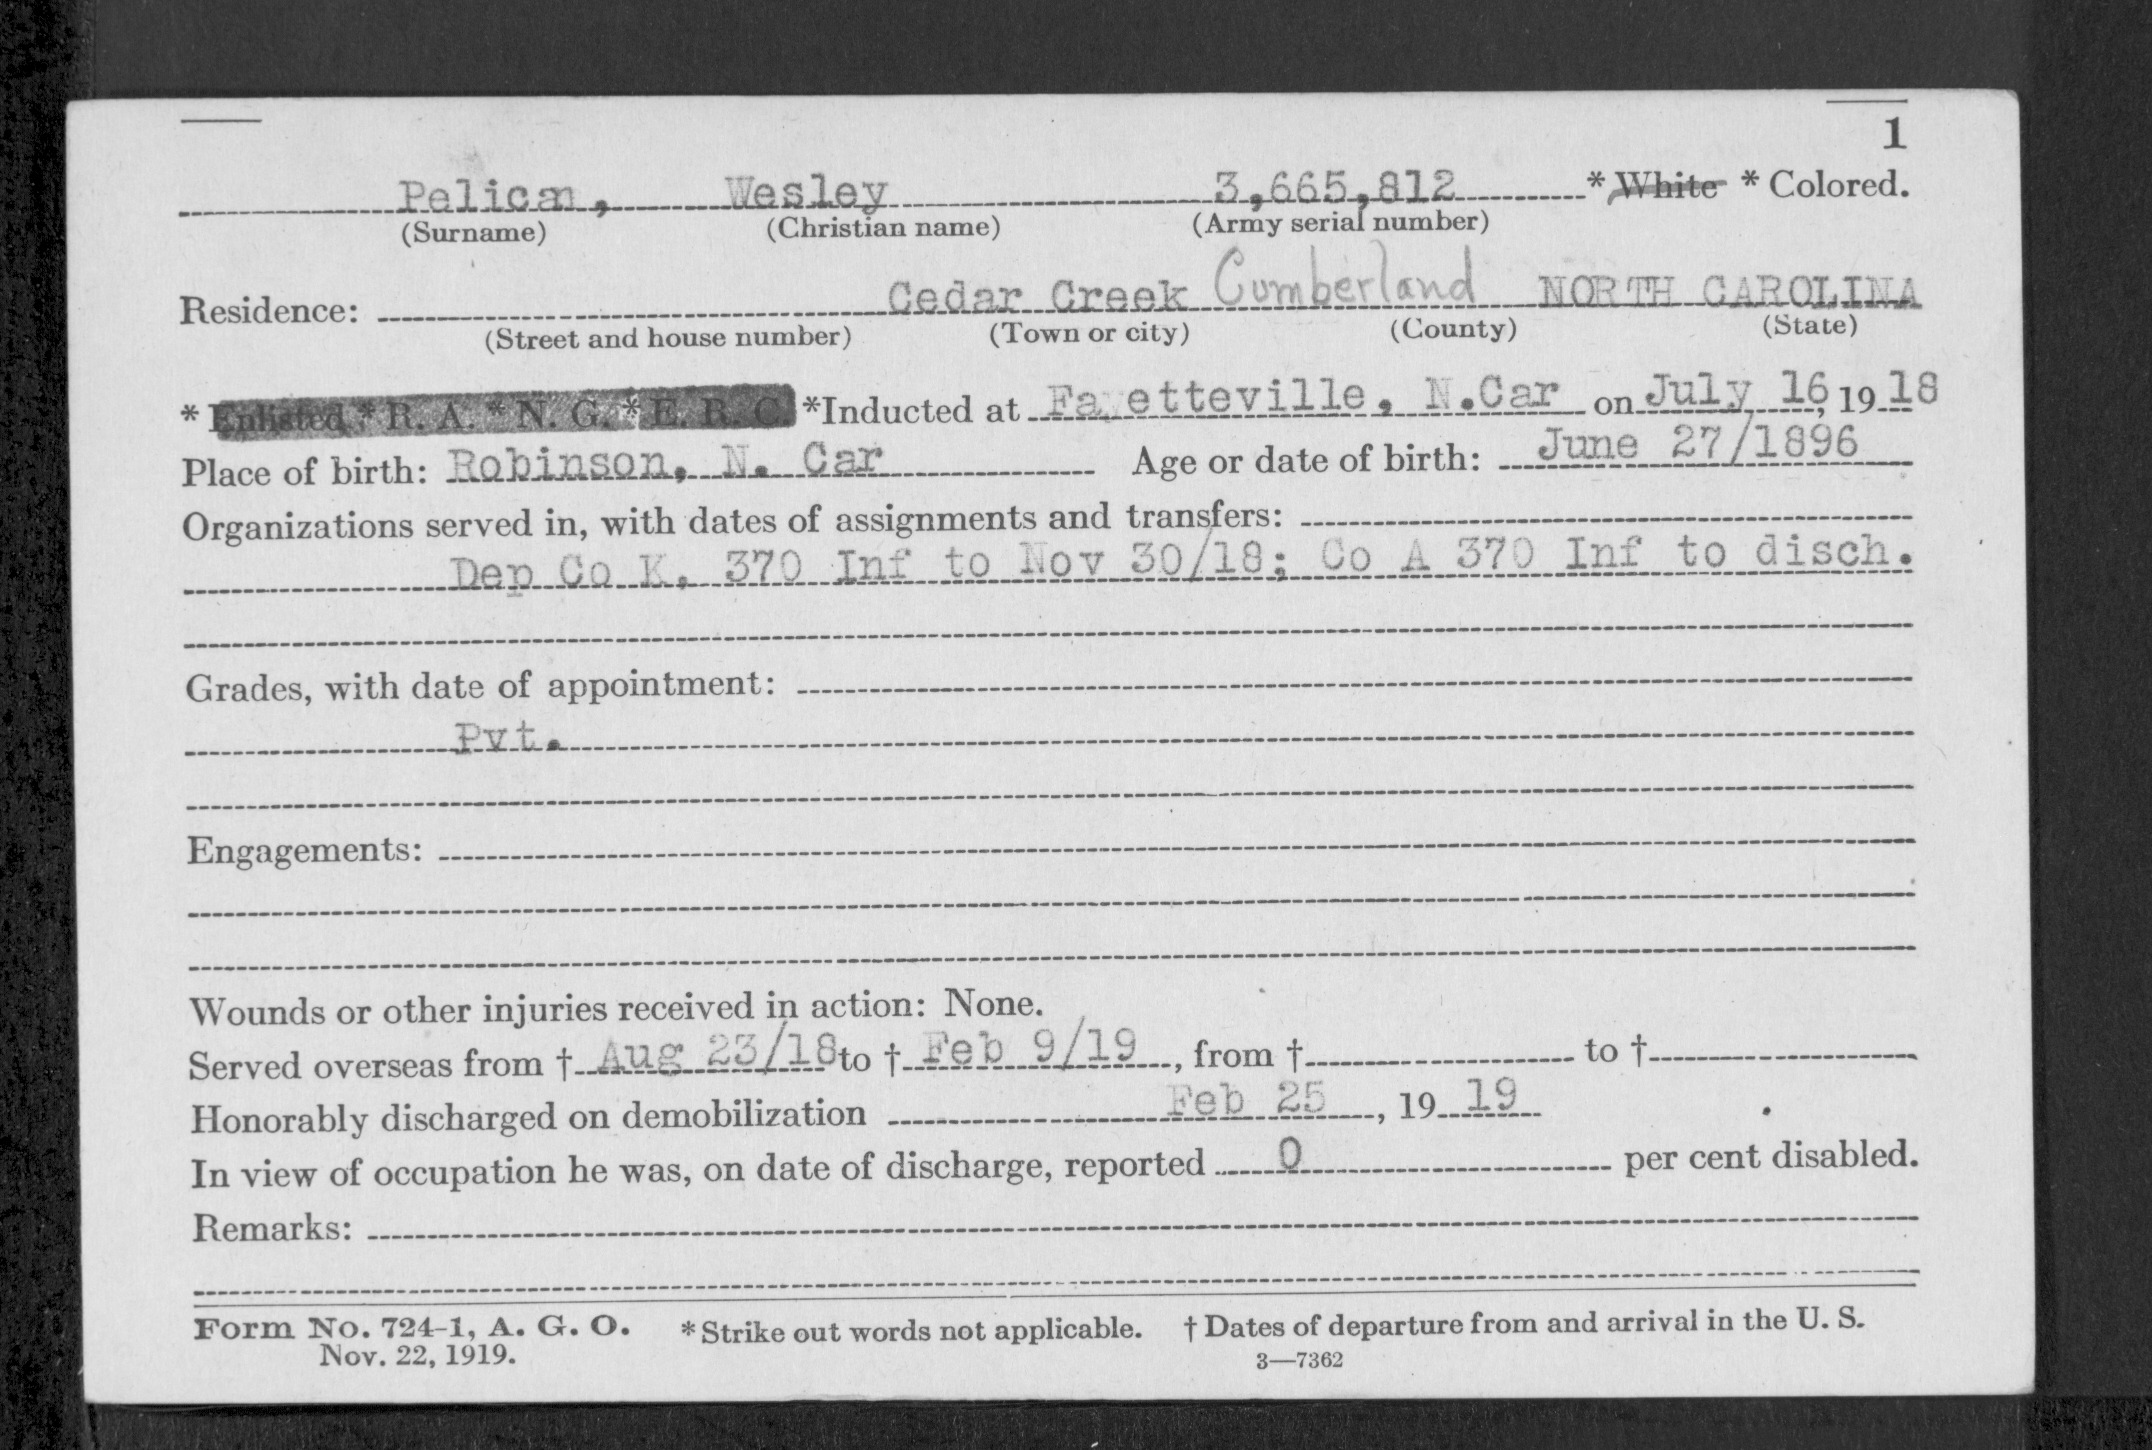 1
Pelican, Wesley 3,665,812 * White * Colored.
(Surname) (Christian name) (Army serial number)
Residence: Cedar Creek Cumberland NORTH CAROLINA
(Street and house number) (Town or city) (County) (State)
* Enlisted * R. A. * N. G. * E. R. C. *Inducted at Fayetteville, N.Car on July 16, 19 18
Place of birth: Robinson, N. Car Age or date of birth: June 27/1896
Organizations served in, with dates of assignments and transfers:
Dep Co K, 370 Inf to Nov 30/18; Co A 370 Inf to disch.
Grades, with date of appointment:
Pvt.
Engagements:
Wounds or other injuries received in action: None.
Served overseas from † Aug 23/18 to † Feb 9/19, from † to †
Honorably discharged on demobilization Feb 25, 19 19
In view of occupation he was, on date of discharge, reported 0 per cent disabled.
Remarks:
Form No. 724-1, A. G. O. * Strike out words not applicable. † Dates of departure from and arrival in the U. S.
Nov. 22, 1919. 3—7362